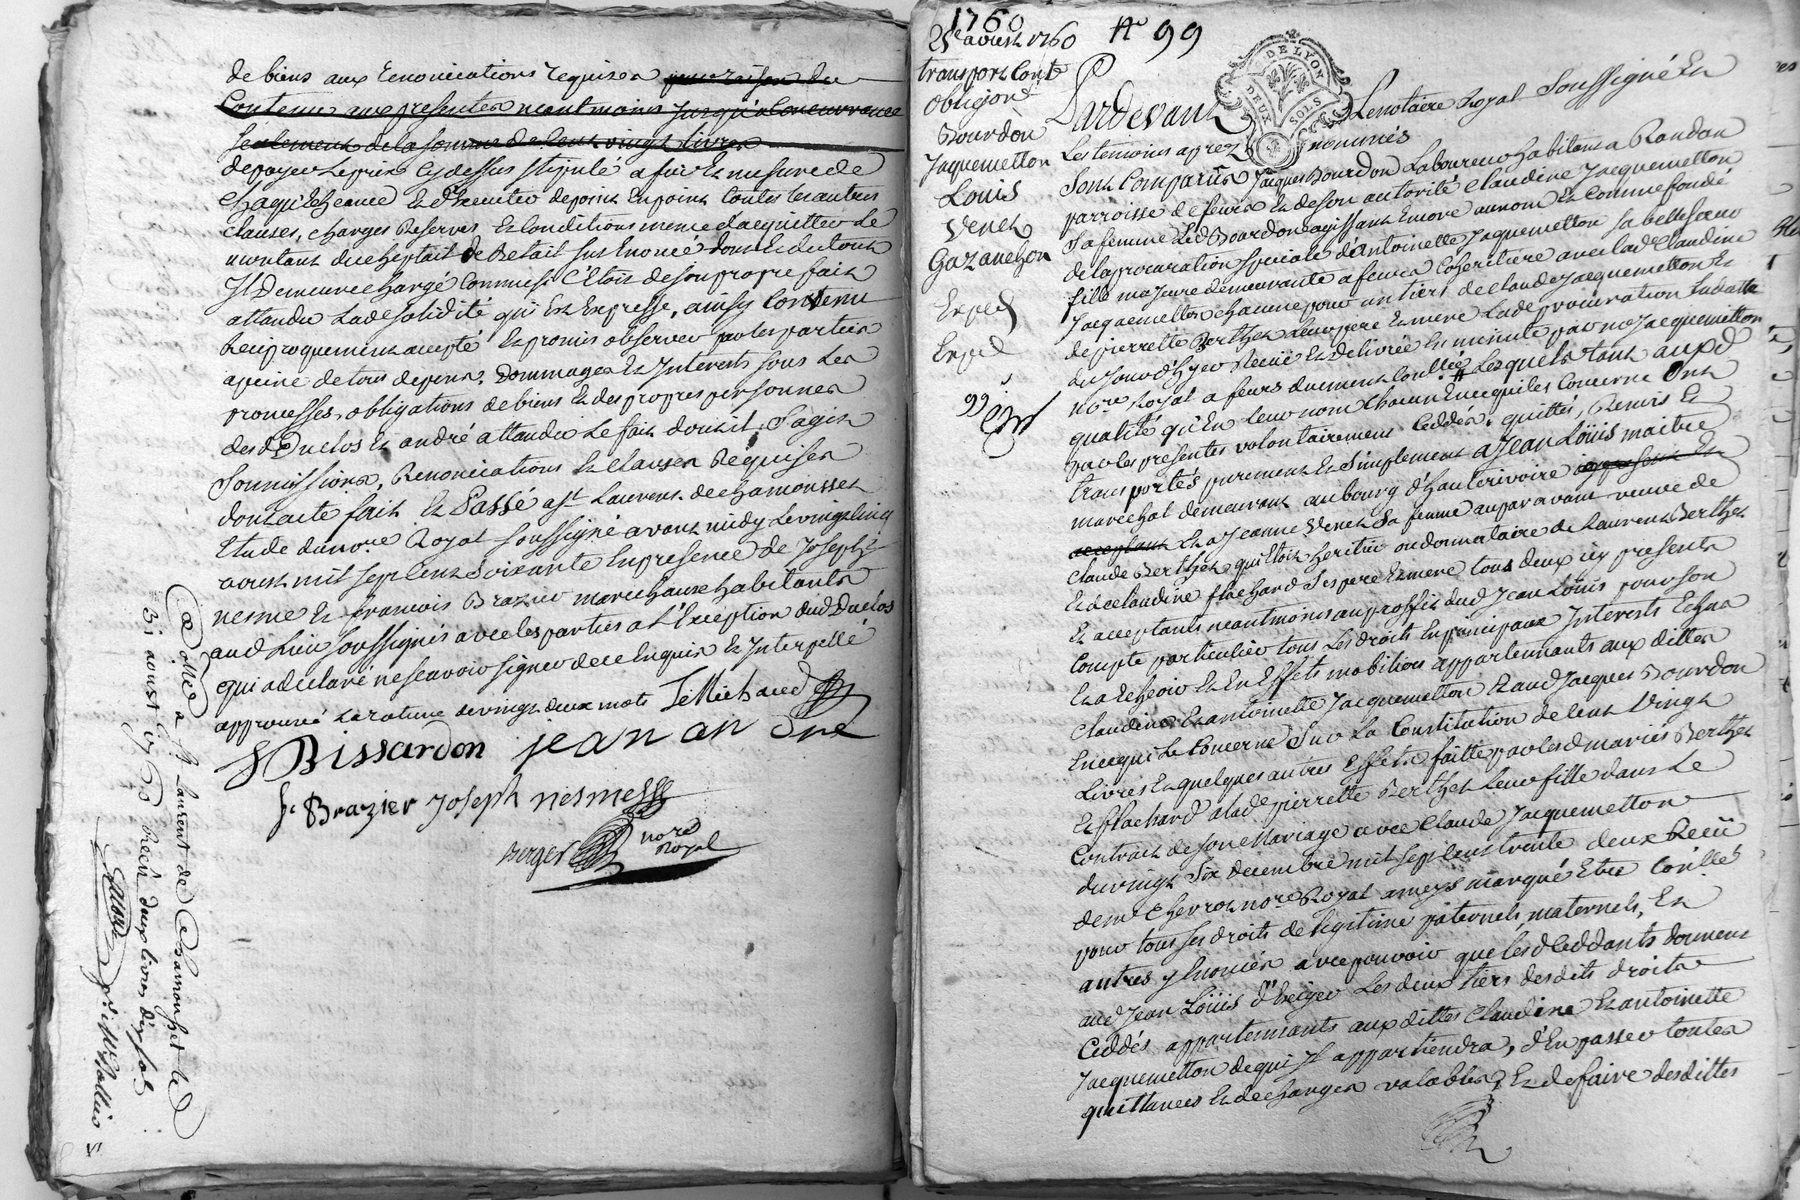 de biens aux renonciations requises pour raison du
contenu aux presentes neantmoins jusqu'à concurrance
seulement de la somme de cent vingt livres
de payer le prix cy dessus stipulé a fur et mesure de
chaqu'echeance et d'executer de point en point toutes les autres
clauses, charges reserves et conditions meme d'acquitter le
montant du cheptait de betail sus enoncé dont et du tout
il demeure chargé comme si c'etoit de son propre fait
attandu lad solidité qui est expresse, ainsy convenu
reciproquement accepté et promis observer par les parties
a peine de tous depens, dommages et interets sous les
promesses, obligations de biens et des propres personnes
desd Duclos et andré attandu le fait dont il s'agit
soumissions, renonciations et clauses requises
dont acte fait et Passé a st Laurent de chamousset
etude du nore Royal soussigné avant midy le vingt cinq
aoust mil sept cent soixante en presence de Joseph
nesme et francois Brazier marechaux habitants
aud lieu soussignés avec les parties a l'exception dud Duclos
qui a declaré ne scavoir signer de ce enquis et interpellé
approuvé la rature de vingt deux mots J Michaud
Bissardon jean an dré
f. Brazier Joseph nesme
Berger nore
Royal
a St Laurent de Chamousset le
31 aoust 1760 Recu deux livres dix sols
1760
25e aoust 1760 No 99
transport cont
obligion
Bourdon
Jaquemetton
Louis
Venet
Gazanchon
Exped
Exped
99
DE LYON
DEUX SOLS
Pardevant Le notaire Royal soussigné et
Les temoins aprez nommés
sont comparus Jacques Bourdon Laboureur habitant a Randan
parroisse de feurs et de son autorité Claudine Jacquemetton
sa femme led Bourdon agissant encore au nom et comme fondé
de la procuration speciale d'antoinette Jaquemetton sa belle soeur
fille majeure demeurante a feurs coheritiere avec lade Claudine
Jacquemetton chacune pour un tiers de claude Jacquemetton et
de pierrette Berthet leurs pere et mere lade procuration
du jour d'hyer Recüe et delivrée en minute par me Jacquemetton
nore Royal a feurs duement Lesquels tant auxd
qualité qu'en leur nom chacun en ce qui les concerne ont
par les presentes volontairement ceddés, quittés, Remis et
transportés purement et simplement a Jean Loüis maitre
marechal demeurant au bourg d'hauterivoire
acceptant et a Jeanne Venet sa femme auparavant veuve de
claude Berthet qui etoit heritier ou donnataire de Laurent Berthet
et de claudine flachard ses pere et mere tous deux icy presents
et acceptants neantmoins au proffit dud Jean Loüis pour son
compte particulier tous les droits en principaux interets echus
et a echeoir et en effets mobiliers appartennants aux dittes
claudine et antoinette Jacquemetton et aud Jacques Bourdon
en ce qui le concerne sur la constitution de cent vingt
livres et quelques autres effets faitte par lesd mariés Berthet
et flachard a lade pierrette Berthet leur fille dans le
contract de son Mariage avec claude Jacquemetton
du vingt six decembre mil sept cent trente deux Recü
de me Chevrot nore Royal
pour tous ses droits de legitime paternels, maternels, et
autres y enoncés avec pouvoir que lesd ceddants donnent
aud Jean Loüis d'exiger les deux tiers desdits droits
ceddés appartennants aux dittes claudine et antoinette
Jacquemetton de qui il appartiendra, d'en passer toutes
quittances et decharges valables, et de faire desdittes